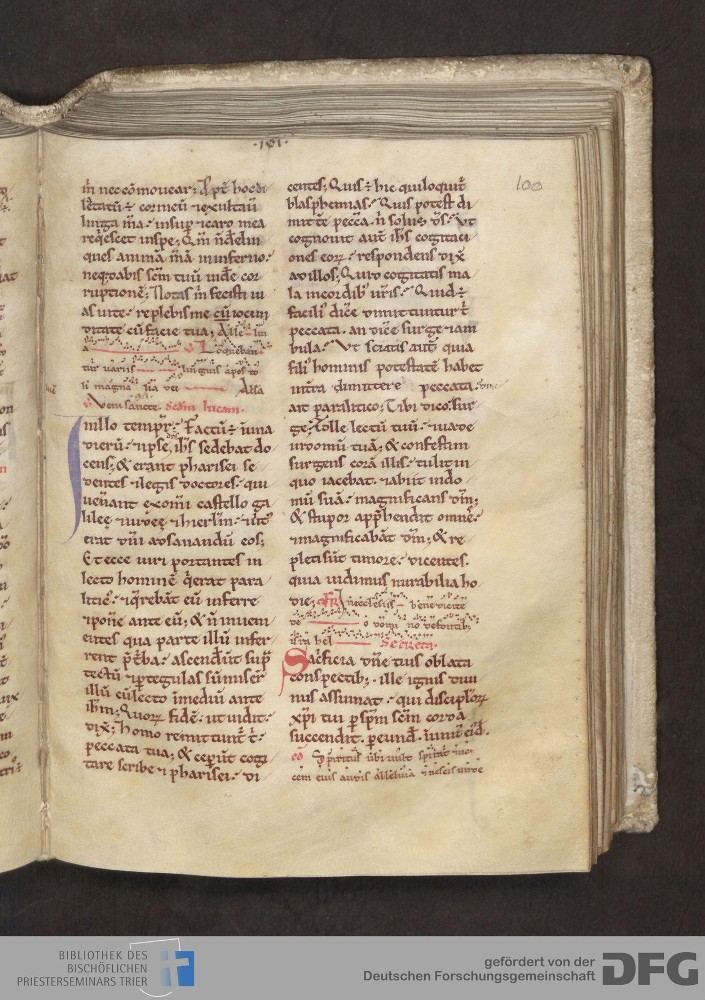 ·101·
100
m̄ ne cōmovear; Ꝑpt̄ hoc di
lectatū ÷ cor meū ⁊ exultaū
lingua m̄a · insup ⁊ caro mea
reqescet in spe; Qm̄ n̄ delin
ques animā m̄ā in inferno ·
neq; dabis scm̄ tuū uide cor
ruptionē; Notas m̄ fecisti ui
as uite · replebis me cū iocun
ditate cū facie tua; Alle lui
a Loqueban
tur variis linguis apostoli
li magna lia dei Alla
Veni sancte. Scdm lucam.
In illo tempr̄ · Factū ÷ in una
dierū · ⁊ ipse ihs̄ sedebat do
cens; & erant pharisei se
dentes ⁊ legis doctores · qui
uen̄ant ex om̄i castello ga
lileę ⁊ iudeę ⁊ hierlm̄ · ⁊ uirt̄
erat dn̄i ad sanandū eos;
Et ecce uiri portantes in
lecto hominē q̄ erat para
litic᷒ · ⁊ q̄rebāt eū inferre
⁊ pon̄e ante eū; & n̄ inueni
entes qua parte illū infer
rent p̄ t̄ba · ascendūt supͣ
tectū · ⁊ p tegulas sūmiser
illū cū lecto in mediū ante
ihm̄; Quoꝝ fidē · ut uidit ·
dix̄; Homo remittunt̄ t̄ ·
peccata tua; & cepūt cogi
tare scribe ⁊ pharisei · di
centes; Quis ÷ hic qui loquit̄
blasphemias · Quis potest di
mittē pecca n̄ solus ds̄ · Vt
cognouit aut̄ ihs̄ cogitaci
ones eoꝝ · respondens dix̄
ad illos; Quid cogitatis ma
la in cordib᷒ uris̄ · Quid ÷
facili᷒ dicē dimittuntur t̄
peccata · an dicē surge ⁊ am
bula · Vt sciatis aut̄ quia
fili᷒ hominis potestatē habet
in t̄ra dimittere peccata
ait paralitico; Tibi dico · sur
ge; Tolle lectū tuū · ⁊ uade
in domū tuā; & confestim
surgens corā illis · tulit in
quo iacebat · ⁊ abiit in do
mū suā · magnificans dm̄;
& stupor app̄hendit omnē ·
⁊ magnificabāt dm̄; & re
pleti sūt timore · dicentes ·
quia uidimus mirabilia ho
die; In ecclesiis benedicite
de o domi no de fontib;
isr̄ı hel Secreta.
Sacrificia dn̄e tuis oblata
conspectib; · ille ignis diui
nus assumat · qui discipl̄oꝝ
xp̄i tui p spm̄ scm̄ corda
succendit · p eund̄ · in uni ei᷒d̄ ·
co Spiritus ubi uult spirat ⁊ uo
cem eius audis alleluia ⁊ nescis unde
BIBLIOTHEK DES
BISCHÖFLICHEN
PRIESTERSEMINARS TRIER
gefördert von der
Deutschen Forschungsgemeinschaft
DFG